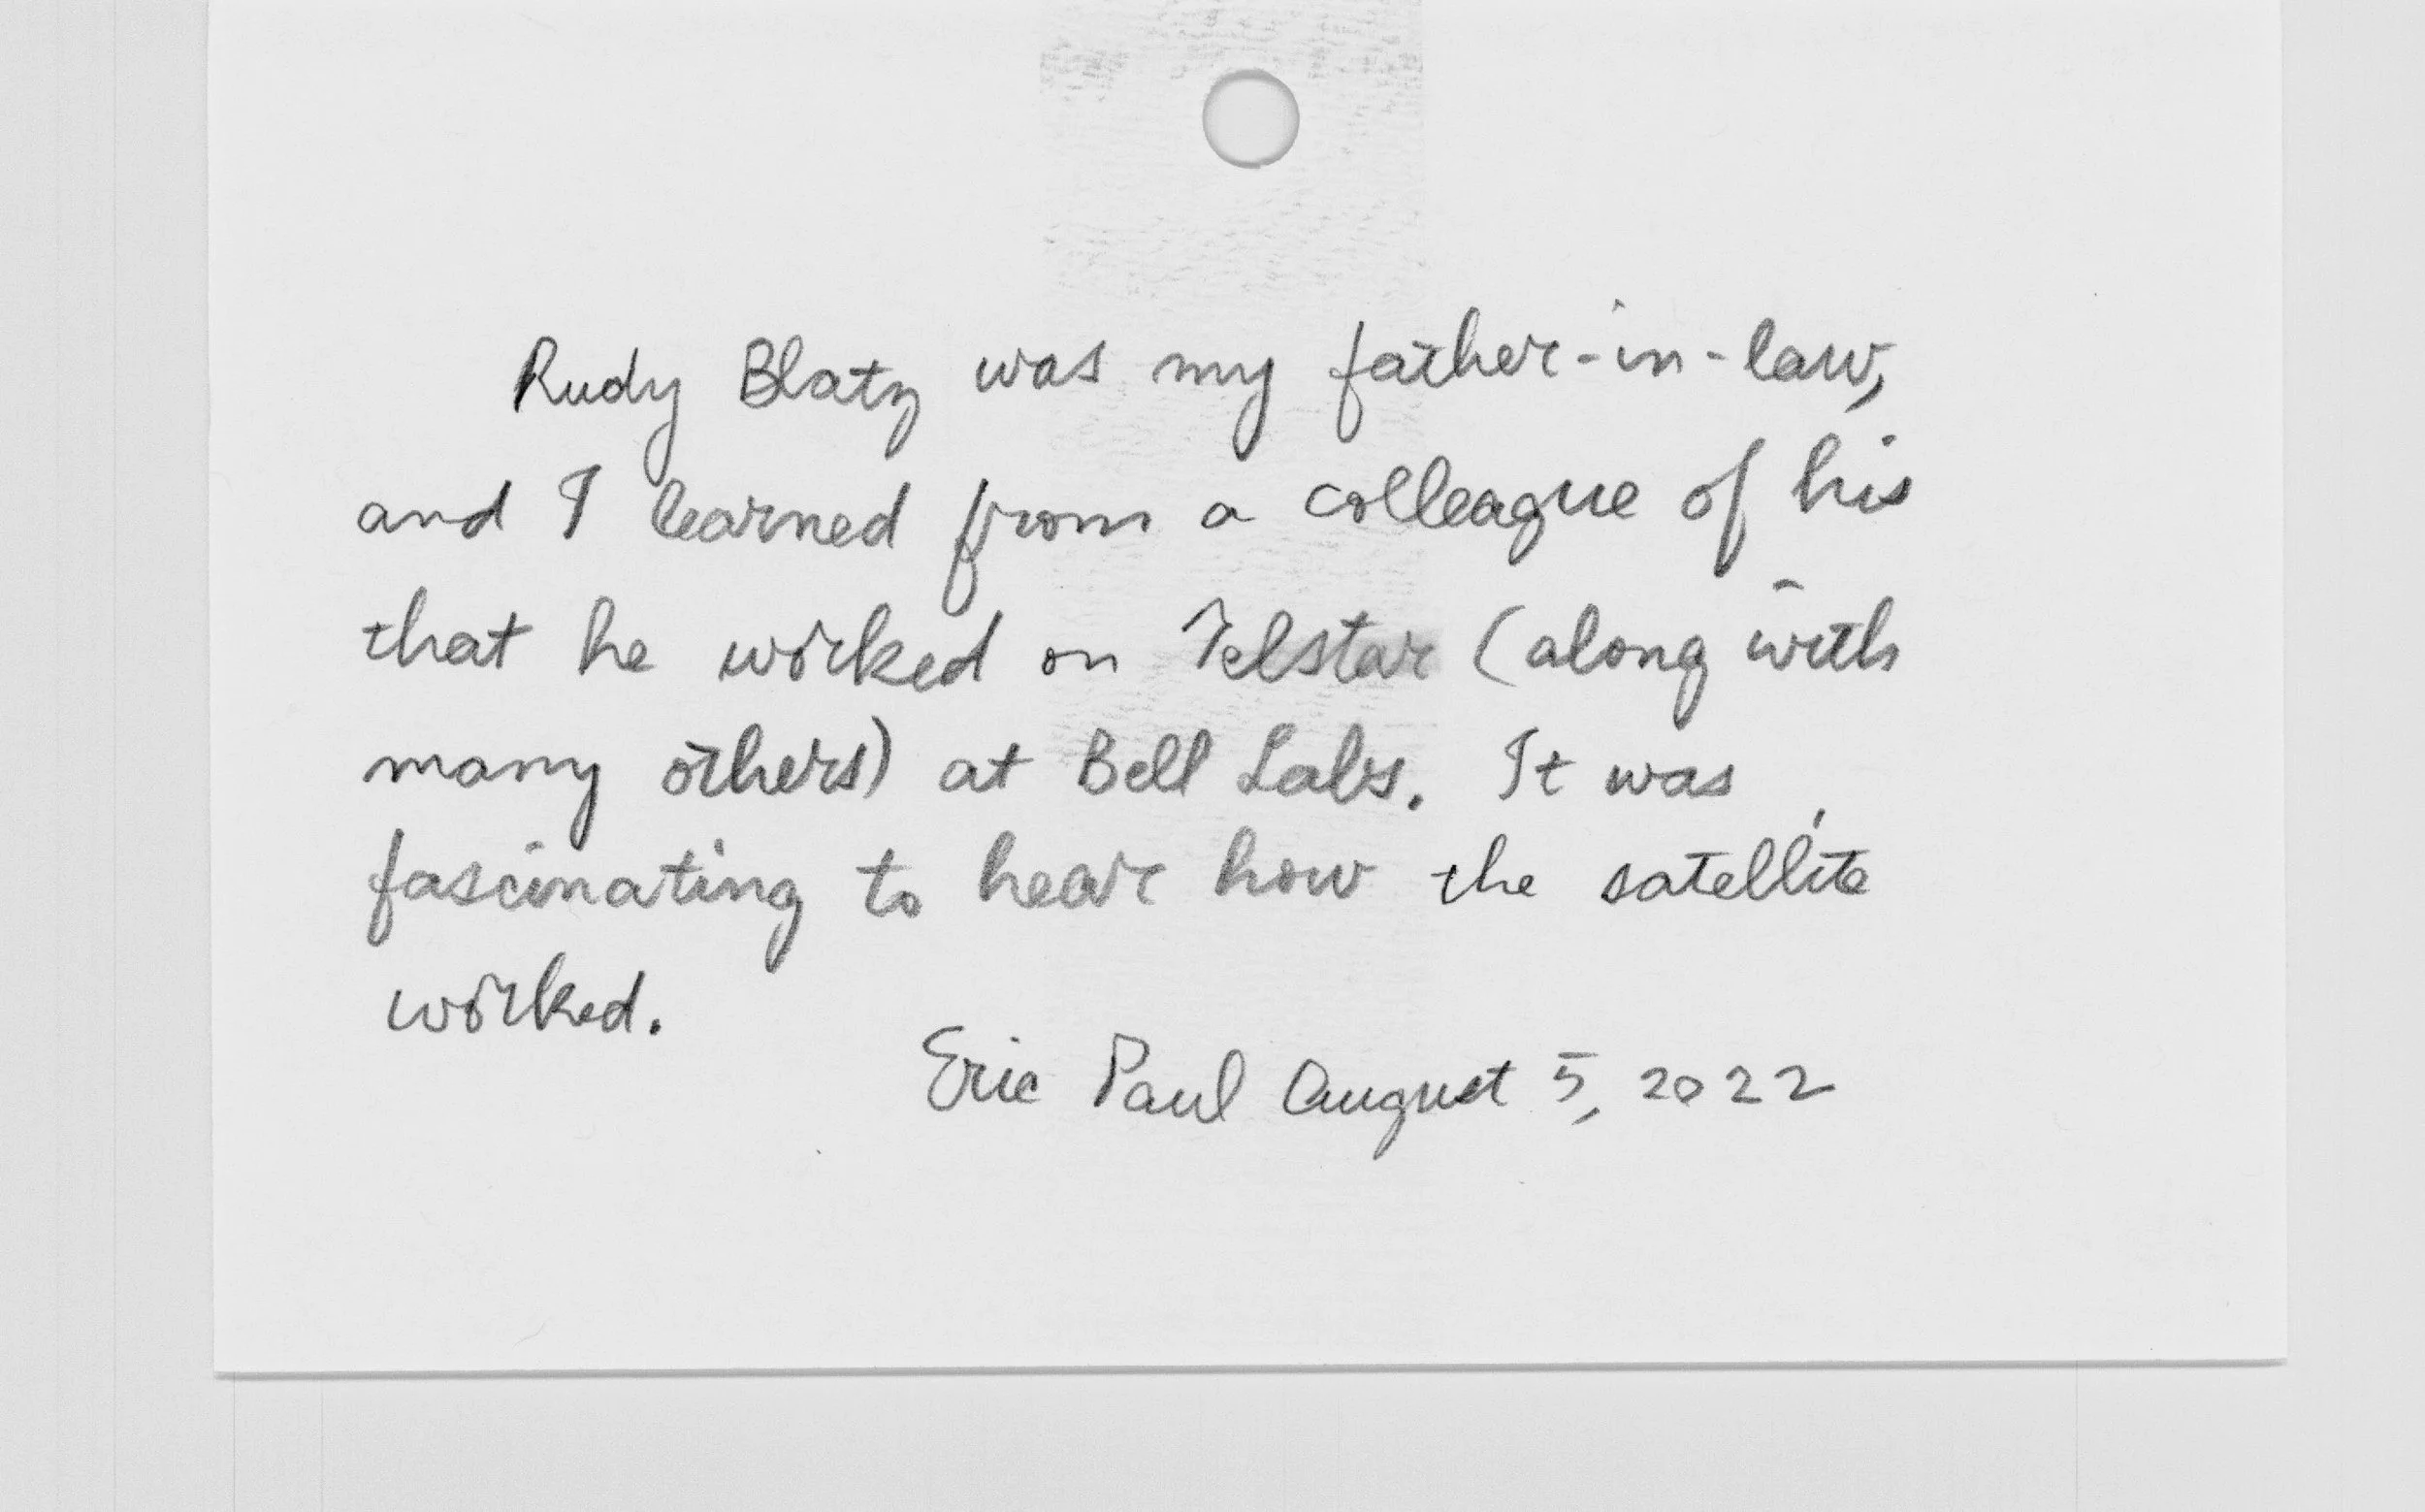 Rudy Blatz was my father-in-law,
and I learned from a colleague of his
that he worked on Telstar (along with
many others) at Bell Labs. It was
fascinating to hear how the satellite
worked.
Eric Paul August 5, 2022